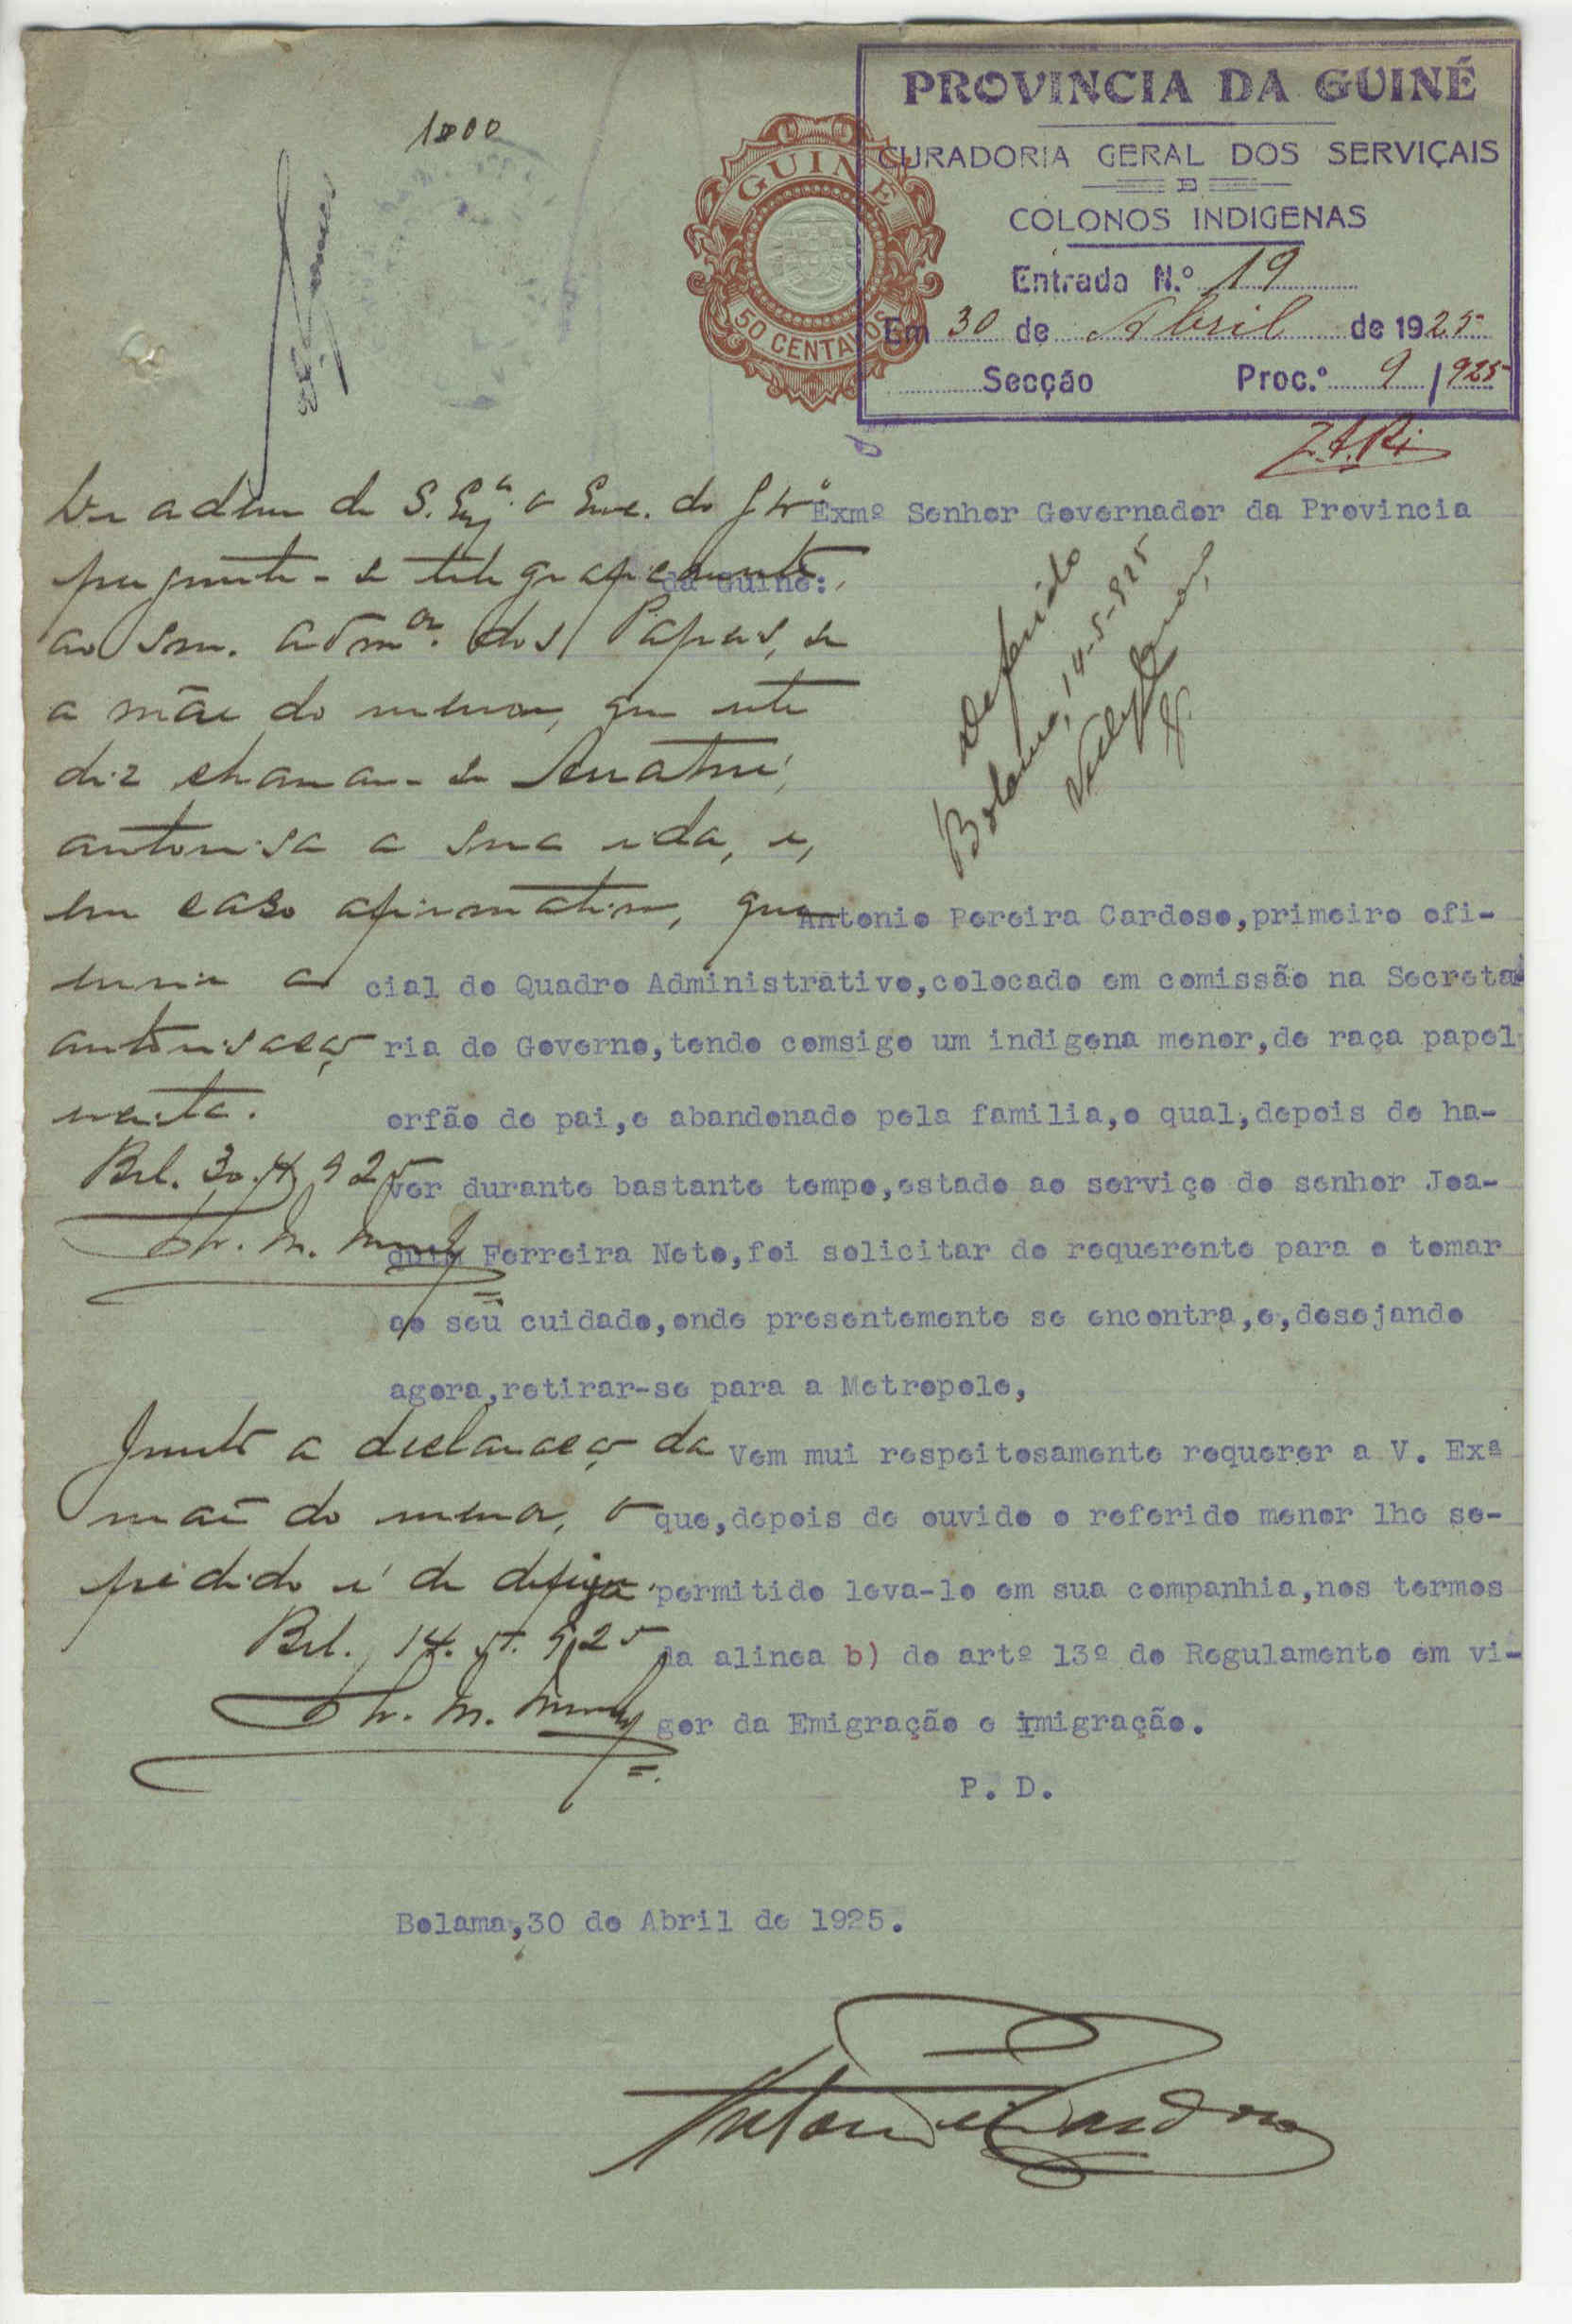 1$00
GUINÉ
50 CENTAVOS
PROVINCIA DA GUINÉ
CURADORIA GERAL DOS SERVIÇAIS
E
COLONOS INDIGENAS
Entrada N.º 19
Em 30 de Abril de 1925
Secção Proc.º 9 / 925
Exmº Senhor Governador da Provincia
da Guiné:
de S. Exª o do
pergunte-se telegraficamente,
ao Snr. admor. dos Papeis, se
a mãe do menor, que este
diz chamar-se
autorisa a sua ida, e,
em caso afirmativo, que
envie a
autorisação
escrita.
Bol. 30.4.925
Deferido
Bolama, 14-5-925
Antonio Pereira Cardoso,primeiro ofi-
cial do Quadro Administrativo,colocado em comissão na Secreta-
ria do Governo,tendo comsigo um indigena menor,de raça papel
orfão de pai,e abandonado pela familia,o qual,depois de ha-
ver durante bastante tempo,estado ao serviço do senhor Joa-
quim Ferreira Neto,foi solicitar do requerente para o tomar
ao seu cuidado,onde presentemente se encontra,e,desejando
agora,retirar-se para a Metropole,
Vem mui respeitosamente requerer a V. Exª
que,depois de ouvido o referido menor lhe se-
permitido leva-lo em sua companhia,nos termos
da alinea b) do artº 13º do Regulamento em vi-
gor da Emigração e imigração.
P. D.
Junto a declaração da
mãe do menor, o
pedido é de deferir.
Bol. 14.5.925
Bolama,30 de Abril de 1925.
Antonio Cardoso